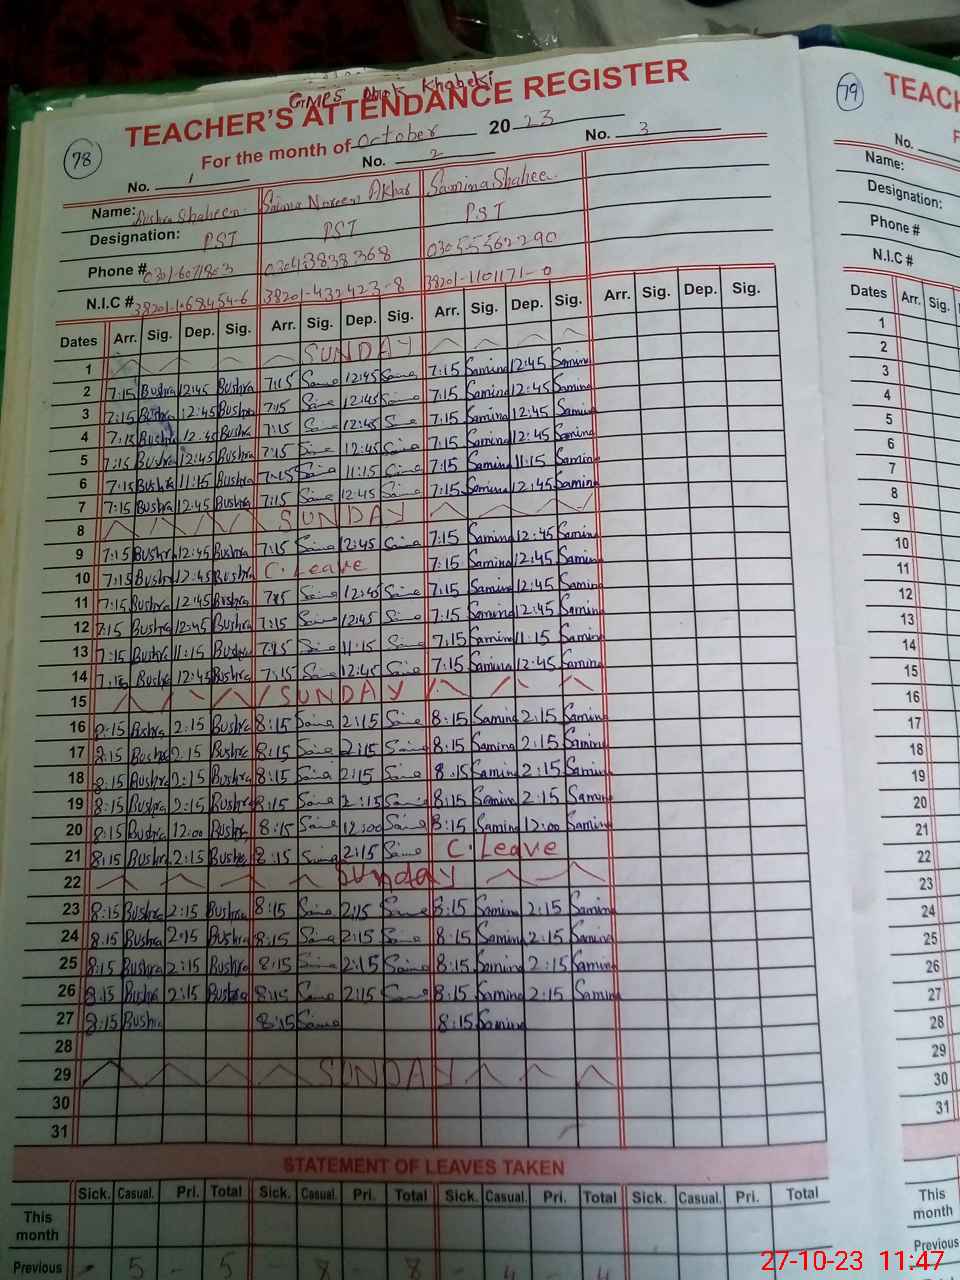 GMPS Dhok Khabeki
TEACHER'S ATTENDANCE REGISTER
78
For the month of October 2023
No. 1 No. 2 No. 3
Name: Bushra Shaheen Saima Noreen Akhar Samina Shahee
Designation: PST PST PST
Phone # 03055562290
N.I.C # 38201-1101171-0
Dates Arr. Sig. Dep. Sig. Arr. Sig. Dep. Sig. Arr. Sig. Dep. Sig. Arr. Sig. Dep. Sig.
1 SUNDAY
2 7:15 Bushra 12:45 Bushra 7:15 Saima 12:45 Saima 7:15 Samina 12:45 Samina
3 7:15 Bushra 12:45 Bushra 7:15 Saima 12:45 Saima 7:15 Samina 12:45 Samina
4 7:15 Bushra 12:45 Bushra 7:15 Saima 12:45 Saima 7:15 Samina 12:45 Samina
5 7:15 Bushra 12:45 Bushra 7:15 Saima 12:45 Saima 7:15 Samina 12:45 Samina
6 7:15 Bushra 11:15 Bushra 7:15 Saima 11:15 Saima 7:15 Samina 11:15 Samina
7 7:15 Bushra 12:45 Bushra 7:15 Saima 12:45 Saima 7:15 Samina 12:45 Samina
8 SUNDAY
9 7:15 Bushra 12:45 Bushra 7:15 Saima 12:45 Saima 7:15 Samina 12:45 Samina
10 7:15 Bushra 12:45 Bushra C. Leave 7:15 Samina 12:45 Samina
11 7:15 Bushra 12:45 Bushra 7:15 Saima 12:45 Saima 7:15 Samina 12:45 Samina
12 7:15 Bushra 12:45 Bushra 7:15 Saima 12:45 Saima 7:15 Samina 12:45 Samina
13 7:15 Bushra 11:15 Bushra 7:15 Saima 11:15 Saima 7:15 Samina 11:15 Samina
14 7:15 Bushra 12:45 Bushra 7:15 Saima 12:45 Saima 7:15 Samina 12:45 Samina
15 SUNDAY
16 8:15 Bushra 2:15 Bushra 8:15 Saima 2:15 Saima 8:15 Samina 2:15 Samina
17 8:15 Bushra 2:15 Bushra 8:15 Saima 2:15 Saima 8:15 Samina 2:15 Samina
18 8:15 Bushra 2:15 Bushra 8:15 Saima 2:15 Saima 8:15 Samina 2:15 Samina
19 8:15 Bushra 2:15 Bushra 8:15 Saima 2:15 Saima 8:15 Samina 2:15 Samina
20 8:15 Bushra 12:00 Bushra 8:15 Saima 12:00 Saima 8:15 Samina 12:00 Samina
21 8:15 Bushra 2:15 Bushra 8:15 Saima 2:15 Saima C. Leave
22 Sunday
23 8:15 Bushra 2:15 Bushra 8:15 Saima 2:15 Saima 8:15 Samina 2:15 Samina
24 8:15 Bushra 2:15 Bushra 8:15 Saima 2:15 Saima 8:15 Samina 2:15 Samina
25 8:15 Bushra 2:15 Bushra 8:15 Saima 2:15 Saima 8:15 Samina 2:15 Samina
26 8:15 Bushra 2:15 Bushra 8:15 Saima 2:15 Saima 8:15 Samina 2:15 Samina
27 8:15 Bushra 8:15 Saima 8:15 Samina
28
29 SUNDAY
30
31
STATEMENT OF LEAVES TAKEN
Sick. Casual. Pri. Total Sick. Casual. Pri. Total Sick. Casual. Pri. Total Sick. Casual. Pri. Total
This month
Previous - 5 - 5 - 8 - 8 4 - 4
79
TEACH
No.
Name:
Designation:
Phone #
N.I.C #
Dates Arr. Sig.
1
2
3
4
5
6
7
8
9
10
11
12
13
14
15
16
17
18
19
20
21
22
23
24
25
26
27
28
29
30
31
This month
Previous
27-10-23 11:47